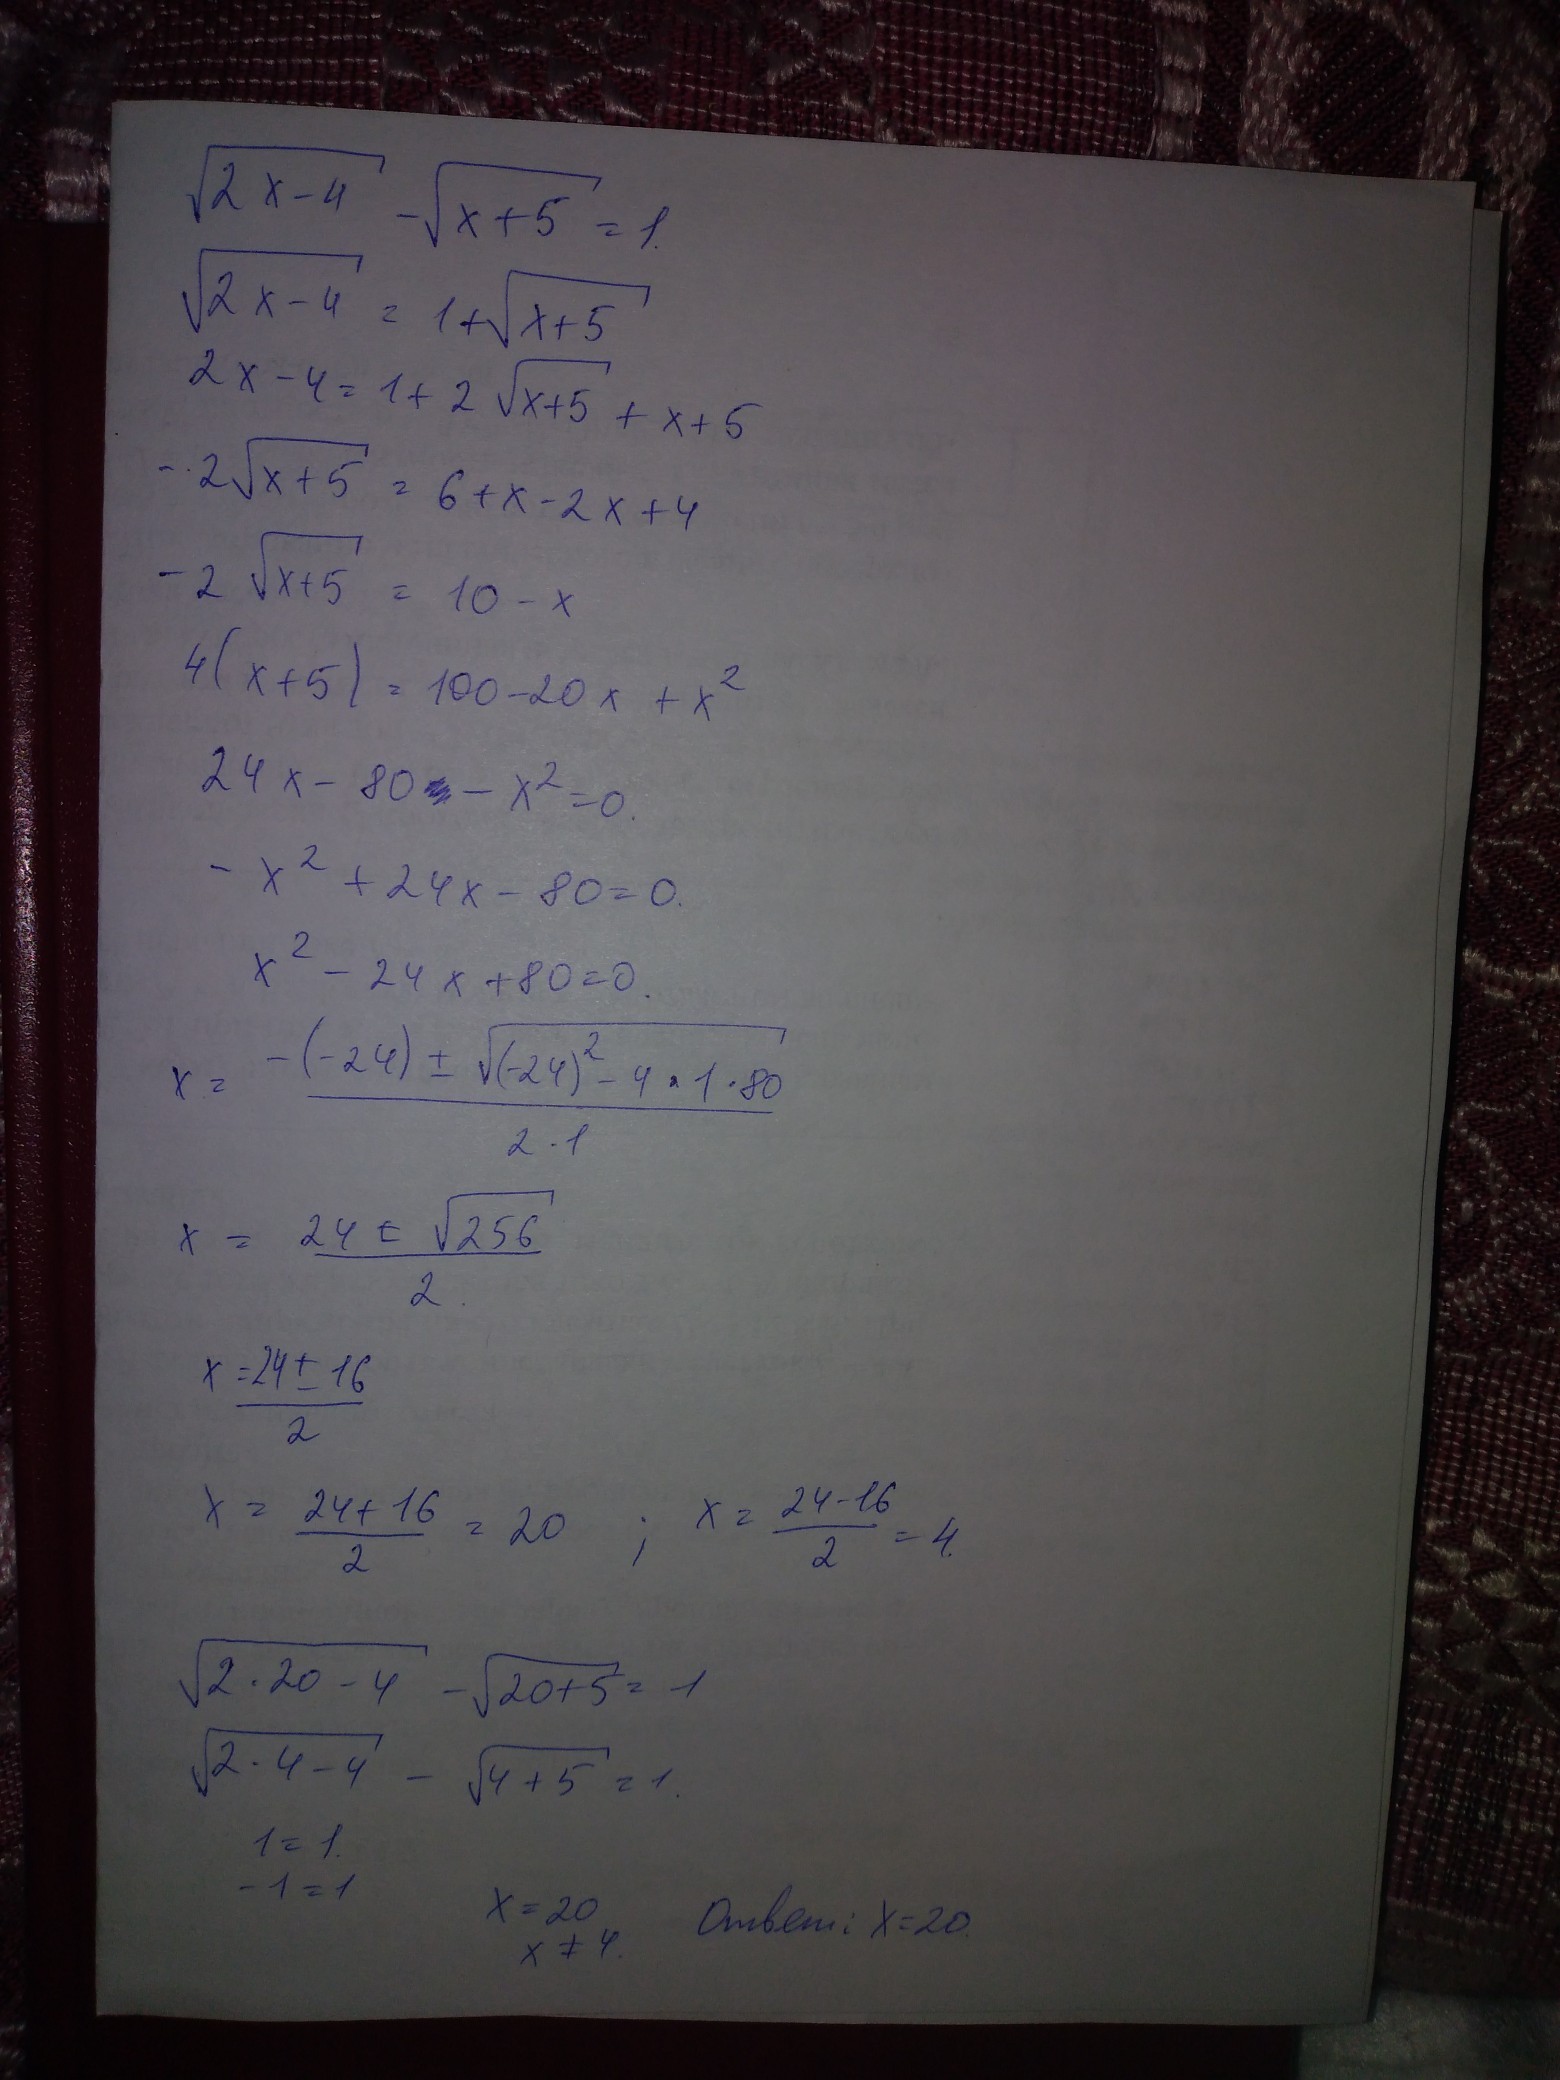 √(2x-4) - √(x+5) = 1.
√(2x-4) = 1+√(x+5)
2x-4 = 1+2√(x+5) + x+5
-2√(x+5) = 6+x-2x+4
-2√(x+5) = 10-x
4(x+5) = 100-20x+x²
24x-80-x²=0.
-x²+24x-80=0.
x²-24x+80=0.
x = (-(-24) ± √((-24)²-4·1·80))/(2·1)
x = (24 ± √256)/2.
x = (24±16)/2
x = (24+16)/2 = 20 ; x = (24-16)/2 = 4.
√(2·20-4) - √(20+5) = 1
√(2·4-4) - √(4+5) = 1.
1=1.
-1=1
x=20 Ответ: x=20.
x≠4.